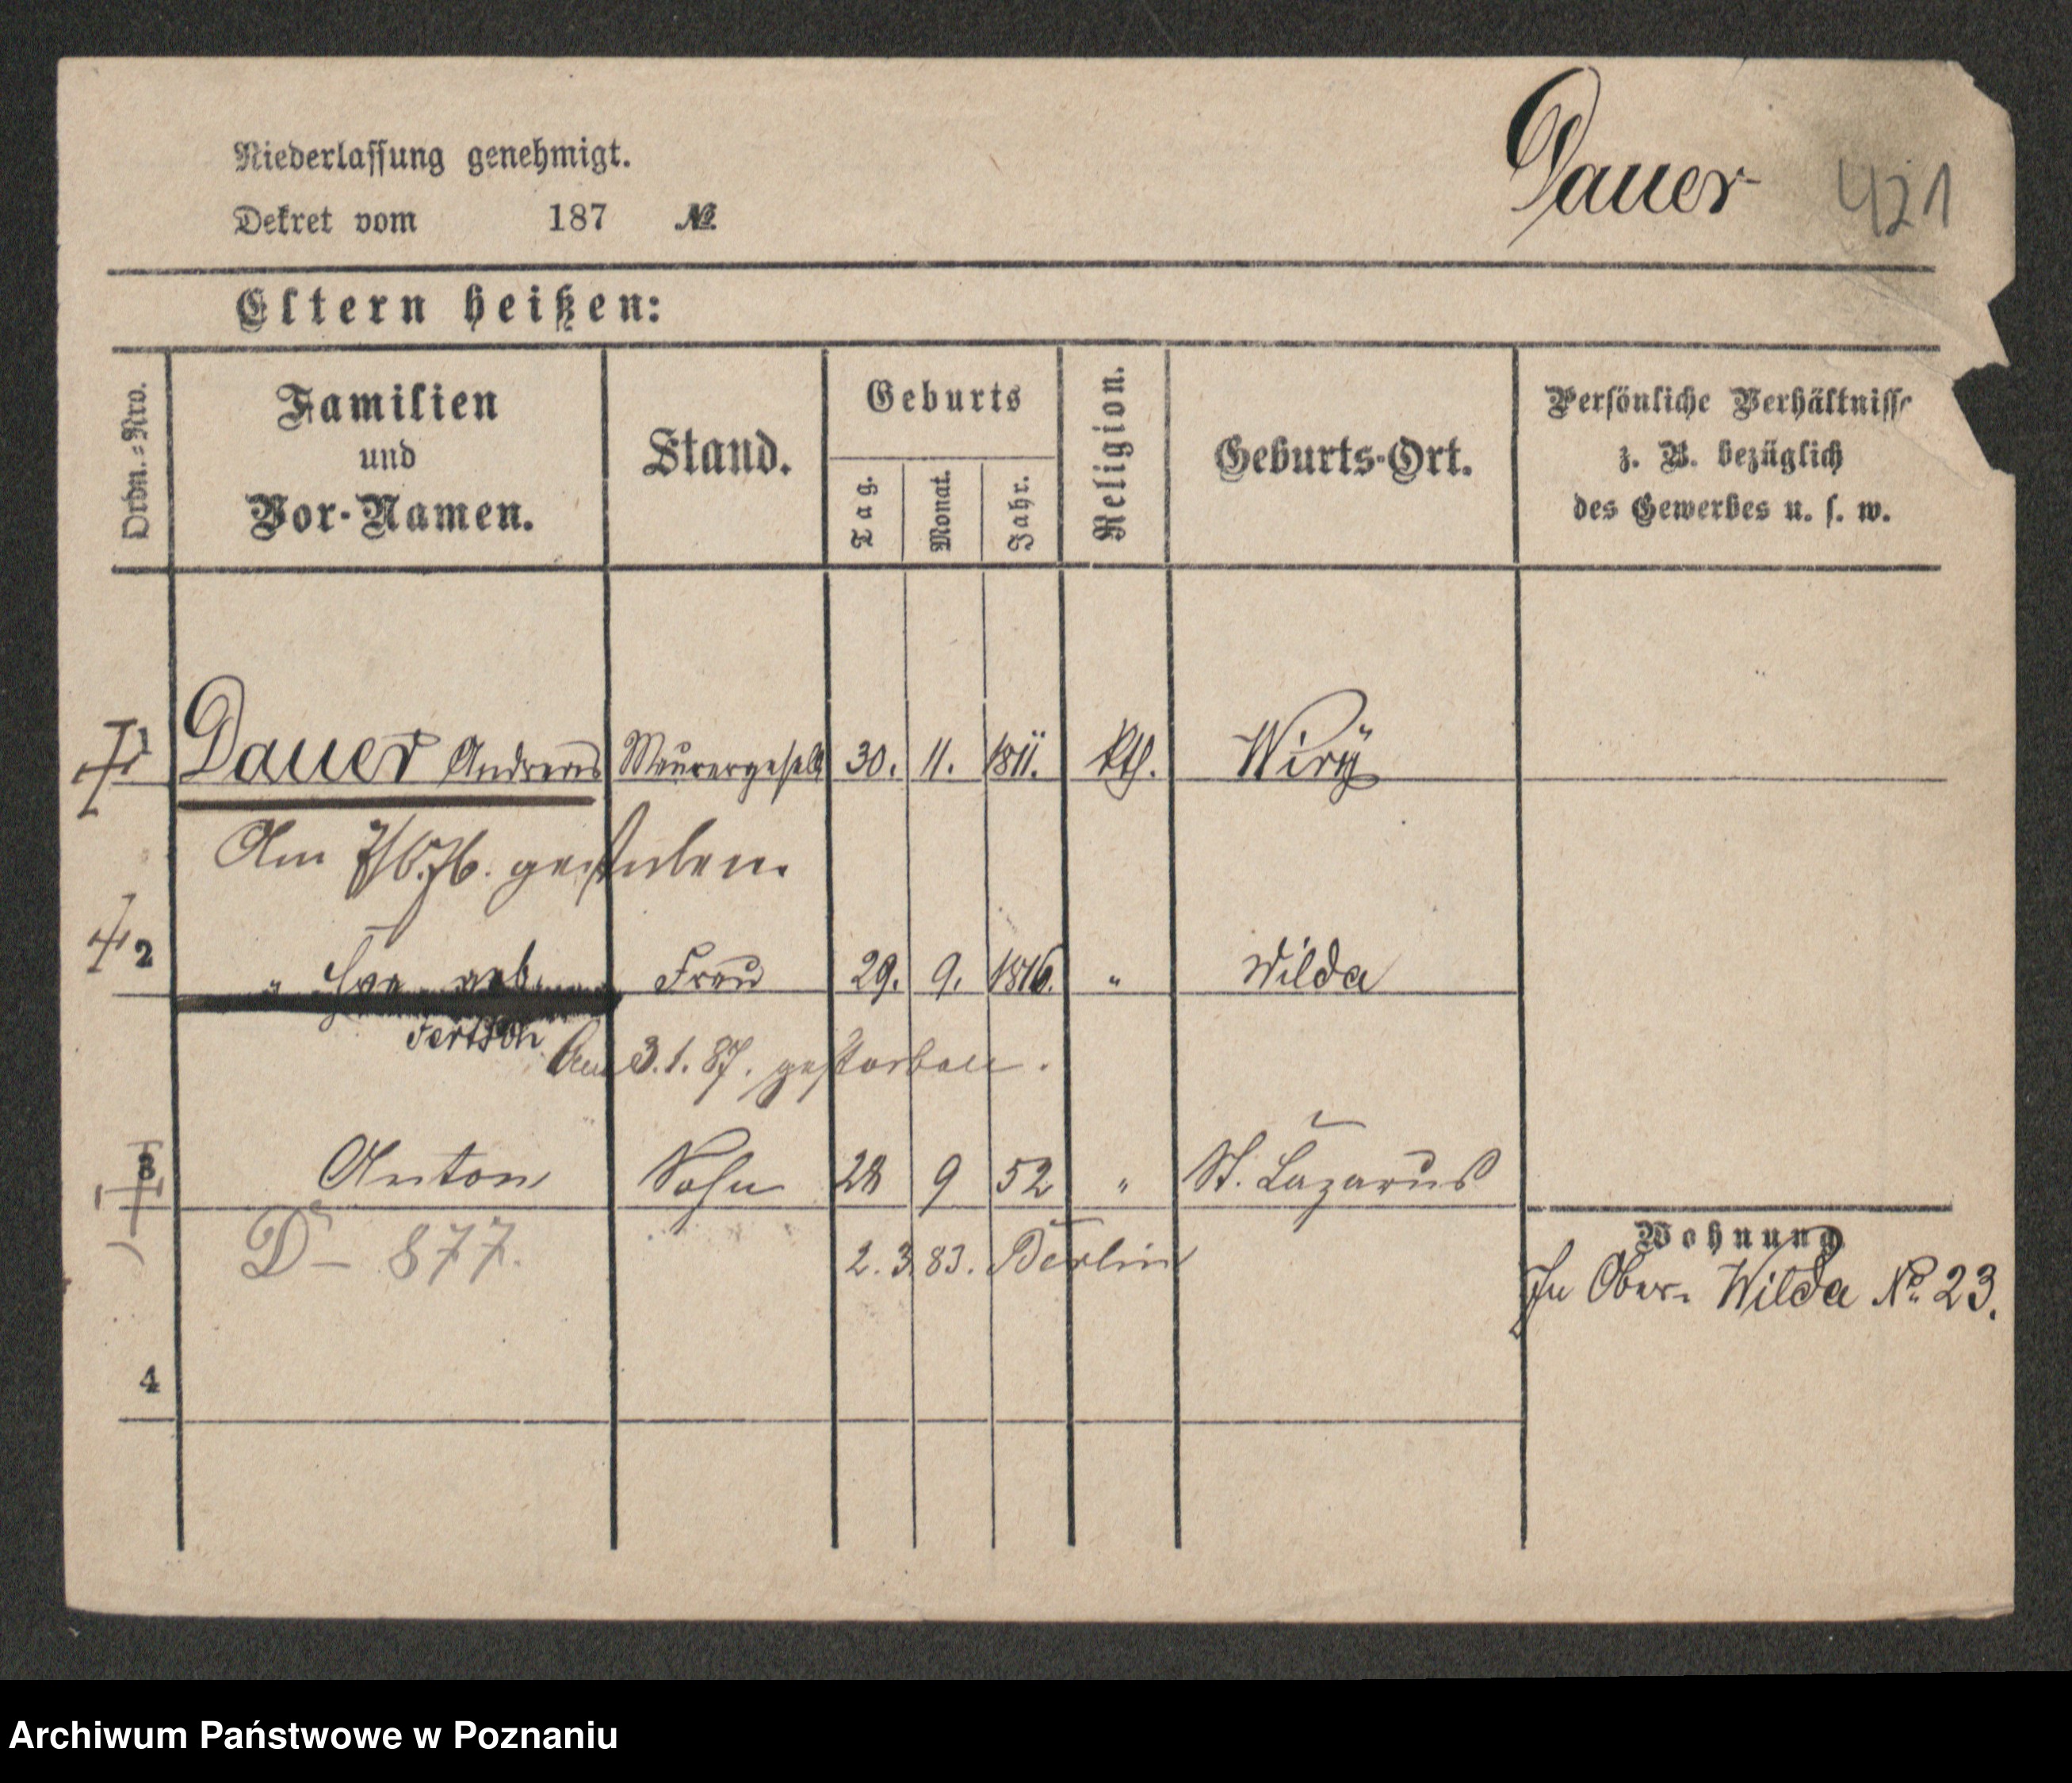 Dauer 421
Niederlassung genehmigt.
Dekret vom 187 №
Eltern heißen:
Ordn.-Nro.
Familien
und
Vor-Namen.
Stand.
Geburts
Tag.
Monat.
Jahr.
Religion.
Geburts-Ort.
Persönliche Verhältnisse
z. B. bezüglich
des Gewerbes u. s. w.
1 Dauer Andreas Maurergesell 30. 11. 1811. kth. Wiry
Am gestorben.
2 " geb. Frau 29. 9. 1816. " Wilda
Am 3.1.87. gestorben.
3 Anton Sohn 28 9 52 " St. Lazarus
D - 877. 2.3.83. Berlin
Wohnung
In Ober-Wilda No. 23.
4
Archiwum Państwowe w Poznaniu